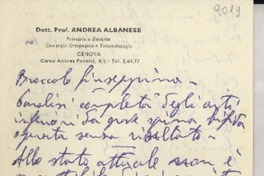 9019
Dott. Prof. ANDREA ALBANESE
Primario e Docente
Chirurgia Ortopedica e Traumatologia
GENOVA
Corso Andrea Podestà, 8/5 - Tel. 5.61.77
Broccoli Giuseppina -
Paralisi completa degli arti
inferiori da grave spina bifida
operata senza risultato -
Allo stato attuale non è